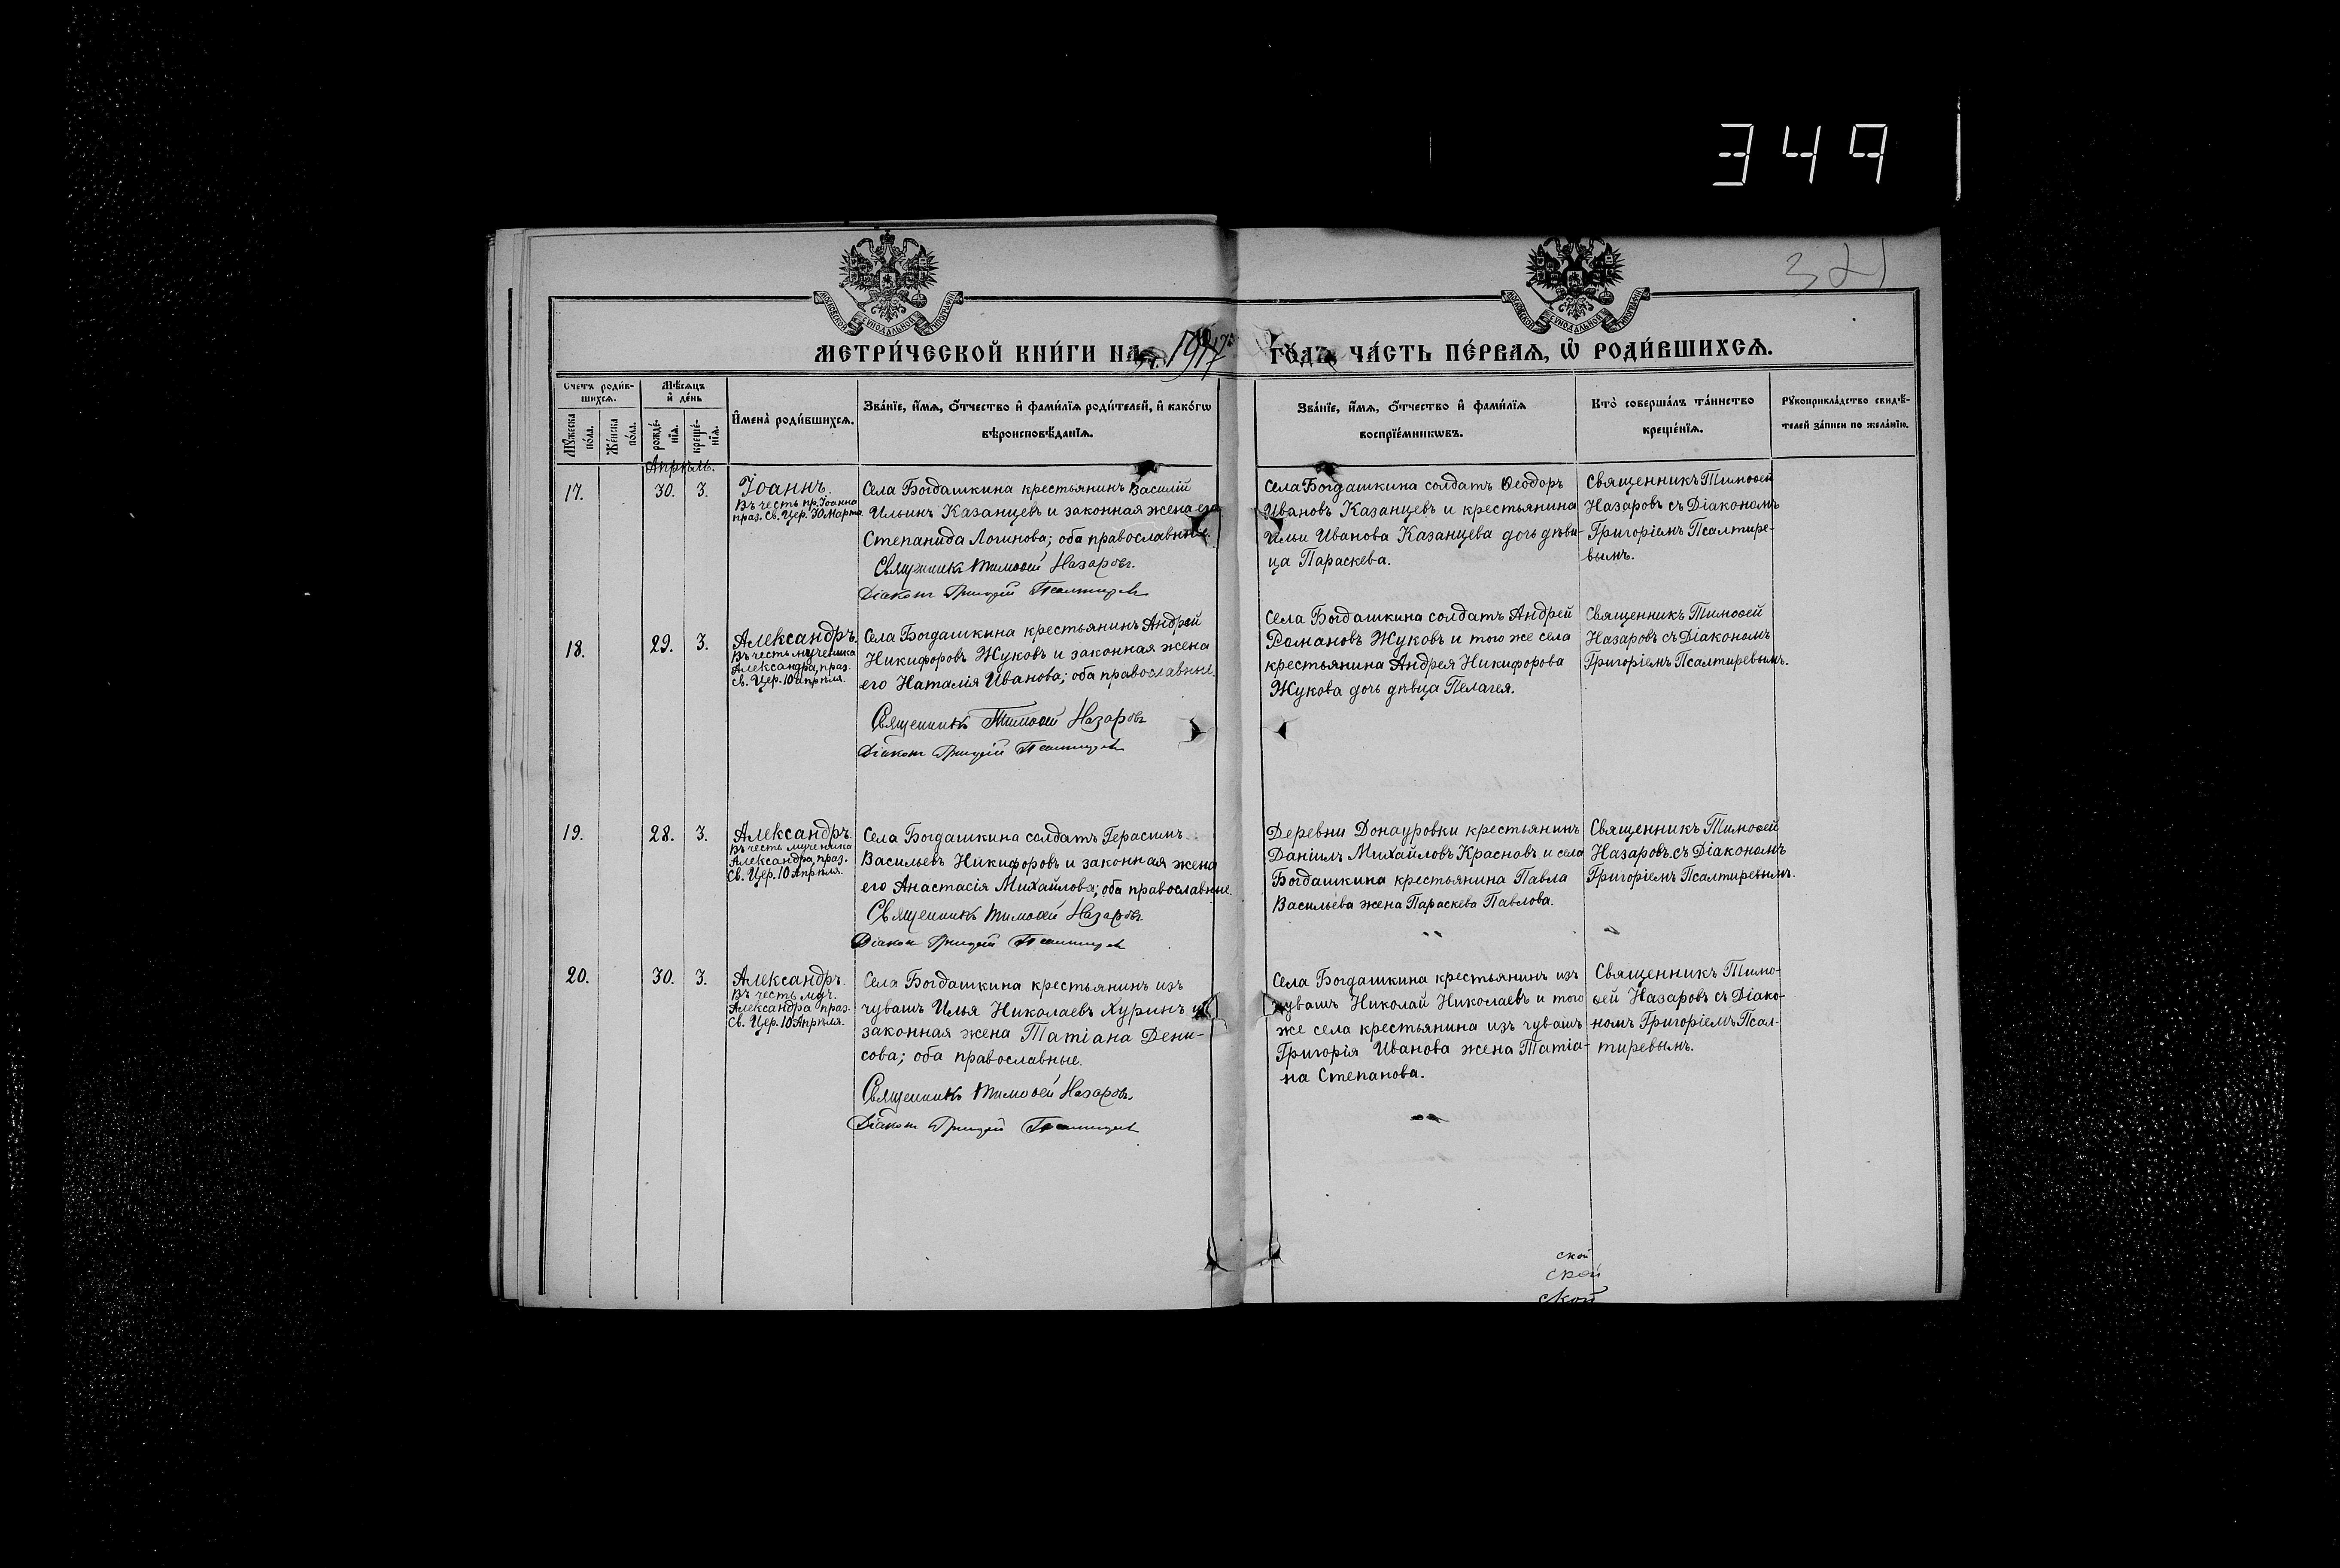 349
321
МОСКОВСКОЙ СѴНОДАЛЬНОЙ ТИПОГРАФІИ
МОСКОВСКОЙ СѴНОДАЛЬНОЙ ТИПОГРАФІИ
МЕТРИ́ЧЕСКОЙ КНИ́ГИ НА 1917 ГО́ДЪ ЧА́СТЬ ПЕ́РВАЯ, Ѡ РОДИ́ВШИХСЯ.
Счетъ роди́в-
шихся.
Мꙋ́жеска по́ла.
Же́нска по́ла.
Мѣ́сяцъ
и де́нь
рожде́-
нїя.
креще́-
нїя.
Имена̀ роди́вшихся.
Зва́нїе, и́мя, о́тчество и фами́лїя роди́телей, и како́гѡ
вѣроисповѣ́данїя.
Зва́нїе, и́мя, о́тчество и фами́лїя
воспрїе́мникѡвъ.
Кто̀ соверша́лъ та́инство
креще́нїя.
Рꙋкоприкла́дство свидѣ́-
телей за́писи по жела́нїю.
Апрѣль.
17.
30.
3.
Іоаннъ.
Въ честь пр. Іоанна
праз. Св. Цер. 30 Марта.
Села Богдашкина крестьянинъ Василій
Ильинъ Казанцевъ и законная жена его
Степанида Логинова; оба православные.
Священникъ Тимоѳей Назаровъ.
Діаконъ Григорій Псалтиревъ
Села Богдашкина солдатъ Ѳеодоръ
Ивановъ Казанцевъ и крестьянина
Ильи Иванова Казанцева дочь дѣви-
ца Параскева.
Священникъ Тимоѳей
Назаровъ съ Діакономъ
Григоріемъ Псалтире-
вымъ.
18.
29.
3.
Александръ.
Въ честь мученика
Александра, праз.
Св. Цер. 10 апрѣля.
Села Богдашкина крестьянинъ Андрей
Никифоровъ Жуковъ и законная жена
его Наталія Иванова; оба православные.
Священникъ Тимоѳей Назаровъ
Діаконъ Григорій Псалтиревъ
Села Богдашкина солдатъ Андрей
Романовъ Жуковъ и того же села
крестьянина Андрея Никифорова
Жукова дочь дѣвица Пелагея.
Священникъ Тимоѳей
Назаровъ съ Діакономъ
Григоріемъ Псалтиревымъ.
19.
28.
3.
Александръ.
Въ честь мученика
Александра, праз.
Св. Цер. 10 Апрѣля.
Села Богдашкина солдатъ Герасимъ
Васильевъ Никифоровъ и законная жена
его Анастасія Михайлова; оба православные.
Священникъ Тимоѳей Назаровъ
Діаконъ Григорій Псалтиревъ
Деревни Донауровки крестьянинъ
Даніилъ Михайловъ Красновъ и села
Богдашкина крестьянина Павла
Васильева жена Параскева Павлова.
Священникъ Тимоѳей
Назаровъ съ Діакономъ
Григоріемъ Псалтиревымъ.
20.
30.
3.
Александръ.
Въ честь муч.
Александра праз.
Св. Цер. 10 Апрѣля.
Села Богдашкина крестьянинъ изъ
чувашъ Илья Николаевъ Хуринъ и
законная жена Татіана Дени-
сова; оба православные.
Священникъ Тимоѳей Назаровъ.
Діаконъ Григорій Псалтиревъ
Села Богдашкина крестьянинъ изъ
чувашъ Николай Николаевъ и того
же села крестьянина изъ чувашъ
Григорія Иванова жена Татіа-
на Степанова.
Священникъ Тимо-
ѳей Назаровъ съ Діако-
номъ Григоріемъ Псал-
тиревымъ.
ской
ской
ской